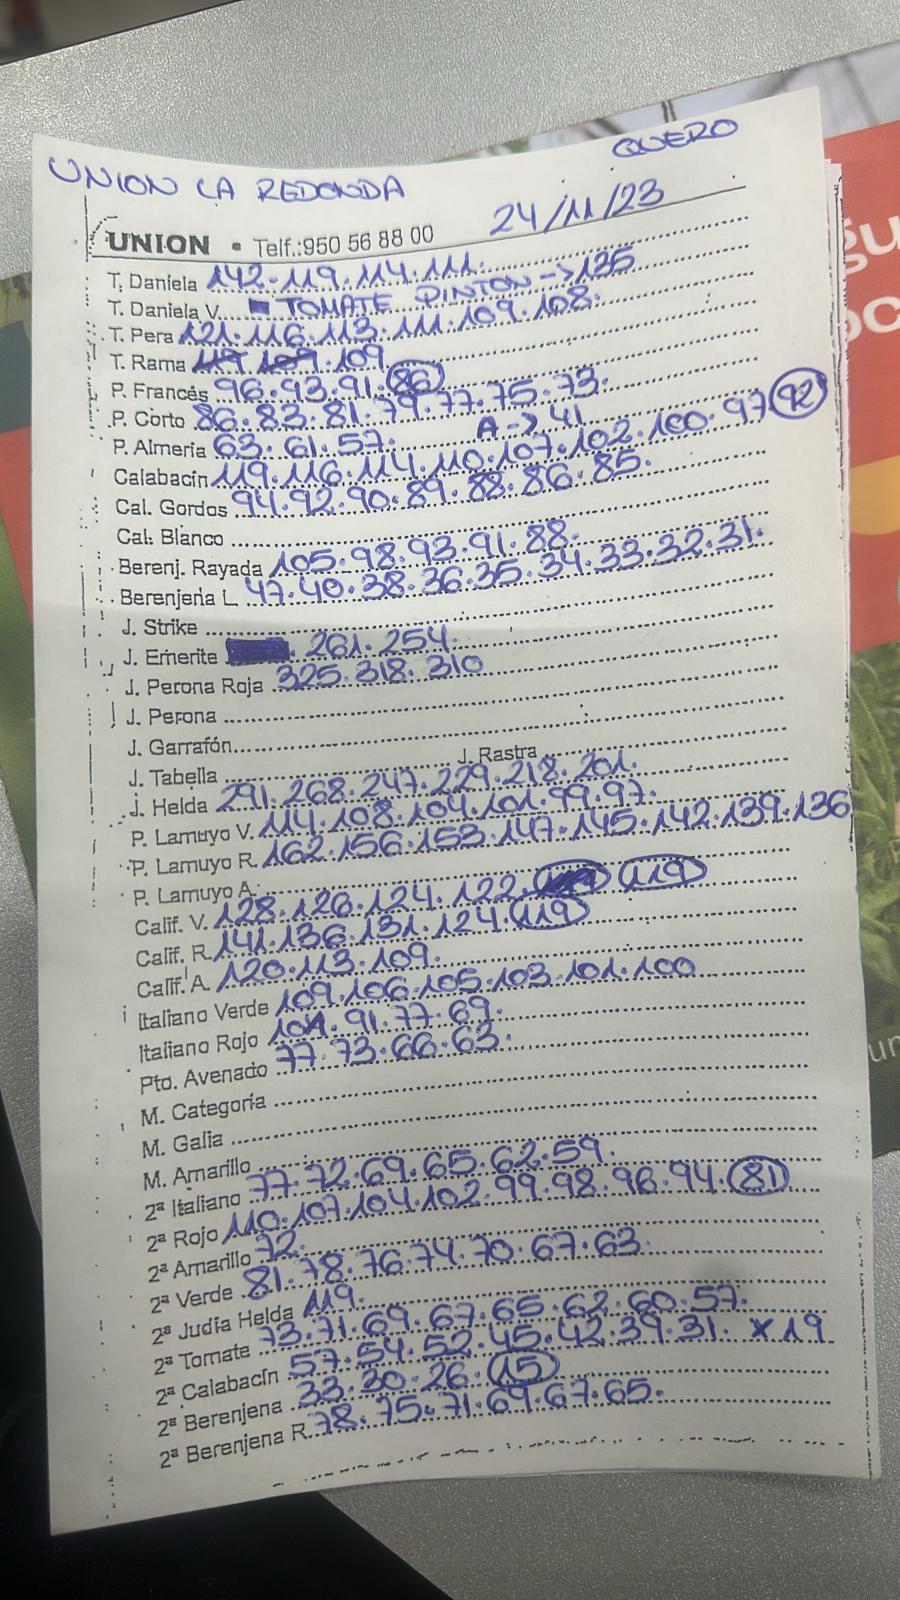 QUERO
UNION LA REDONDA
24/11/23
UNION • Telf.:950 56 88 00
T. Daniela 142.119.114.111.
T. Daniela V. TOMATE PINTON -> 135
T. Pera 121.116.113.111.109.108.
T. Rama 119 109.109
P. Francés 96.93.91.86
P. Corto 86.83.81.79.77.75.73.
P. Almería 63.61.57. A -> 41
Calabacín 119.116.114.110.107.102.100.97 92
Cal. Gordos 94.92.90.89.88.86.85.
Cal. Blanco
Berenj. Rayada 105.98.93.91.88.
Berenjena L 47.40.38.36.35.34.33.32.31.
J. Strike
J. Emerite . 261.254.
J. Perona Roja 325.318.310
J. Perona
J. Garrafón
J. Tabella J. Rastra
J. Helda 291.268.247.229.218.201.
P. Lamuyo V. 114.108.104.101.99.97.
P. Lamuyo R. 162.156.153.147.145.142.139.136
P. Lamuyo A.
Calif. V. 128.126.124.122. 119
Calif. R. 141.136.131.124.119
Calif. A. 120.113.109.
Italiano Verde 109.106.105.103.101.100
Italiano Rojo 101.91.77.69.
Pto. Avenado 77.73.66.63.
M. Categoría
M. Galia
M. Amarillo
2ª Italiano 77.72.69.65.62.59.
2ª Rojo 110.107.104.102.99.98.96.94.81
2ª Amarillo 72.
2ª Verde 81.78.76.74.70.67.63.
2ª Judía Helda 119.
2ª Tomate 73.71.69.67.65.62.60.57.
2ª Calabacín 57.54.52.45.42.39.31. x 19
2ª Berenjena 33.30.26.15
2ª Berenjena R. 78.75.71.69.67.65.